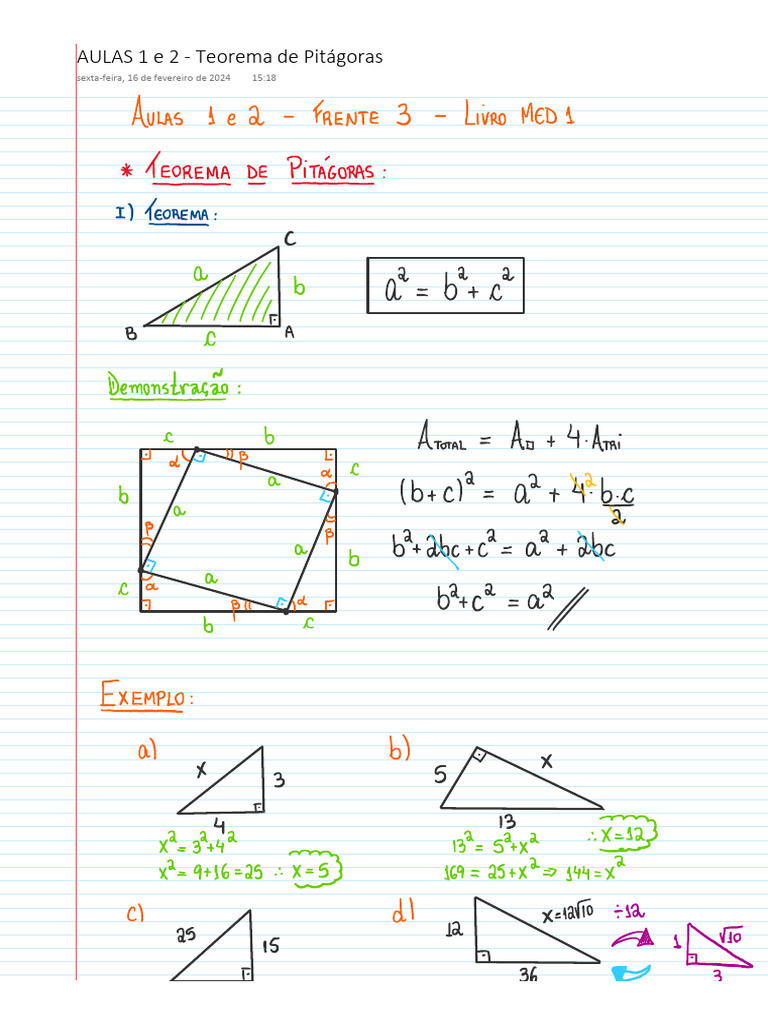 AULAS 1 e 2 - Teorema de Pitágoras
sexta-feira, 16 de fevereiro de 2024 15:18
AULAS 1 e 2 - FRENTE 3 - LIVRO MED 1
* TEOREMA DE PITÁGORAS:
I) TEOREMA:
C
a
b
B
c
A
a² = b² + c²
Demonstração:
c b
α β
a α c
b a
β β
a b
a
c α
β α
b c
A TOTAL = A□ + 4·A TRI
(b+c)² = a² + 4² · b·c/2
b² + 2bc + c² = a² + 2bc
b² + c² = a² //
EXEMPLO:
a)
x
3
4
x² = 3² + 4²
x² = 9 + 16 = 25 ∴ x = 5
b)
5
x
13
13² = 5² + x² ∴ x = 12
169 = 25 + x² ⇒ 144 = x²
c)
25
15
d)
12
x = 12√10
36
÷12
1
√10
3